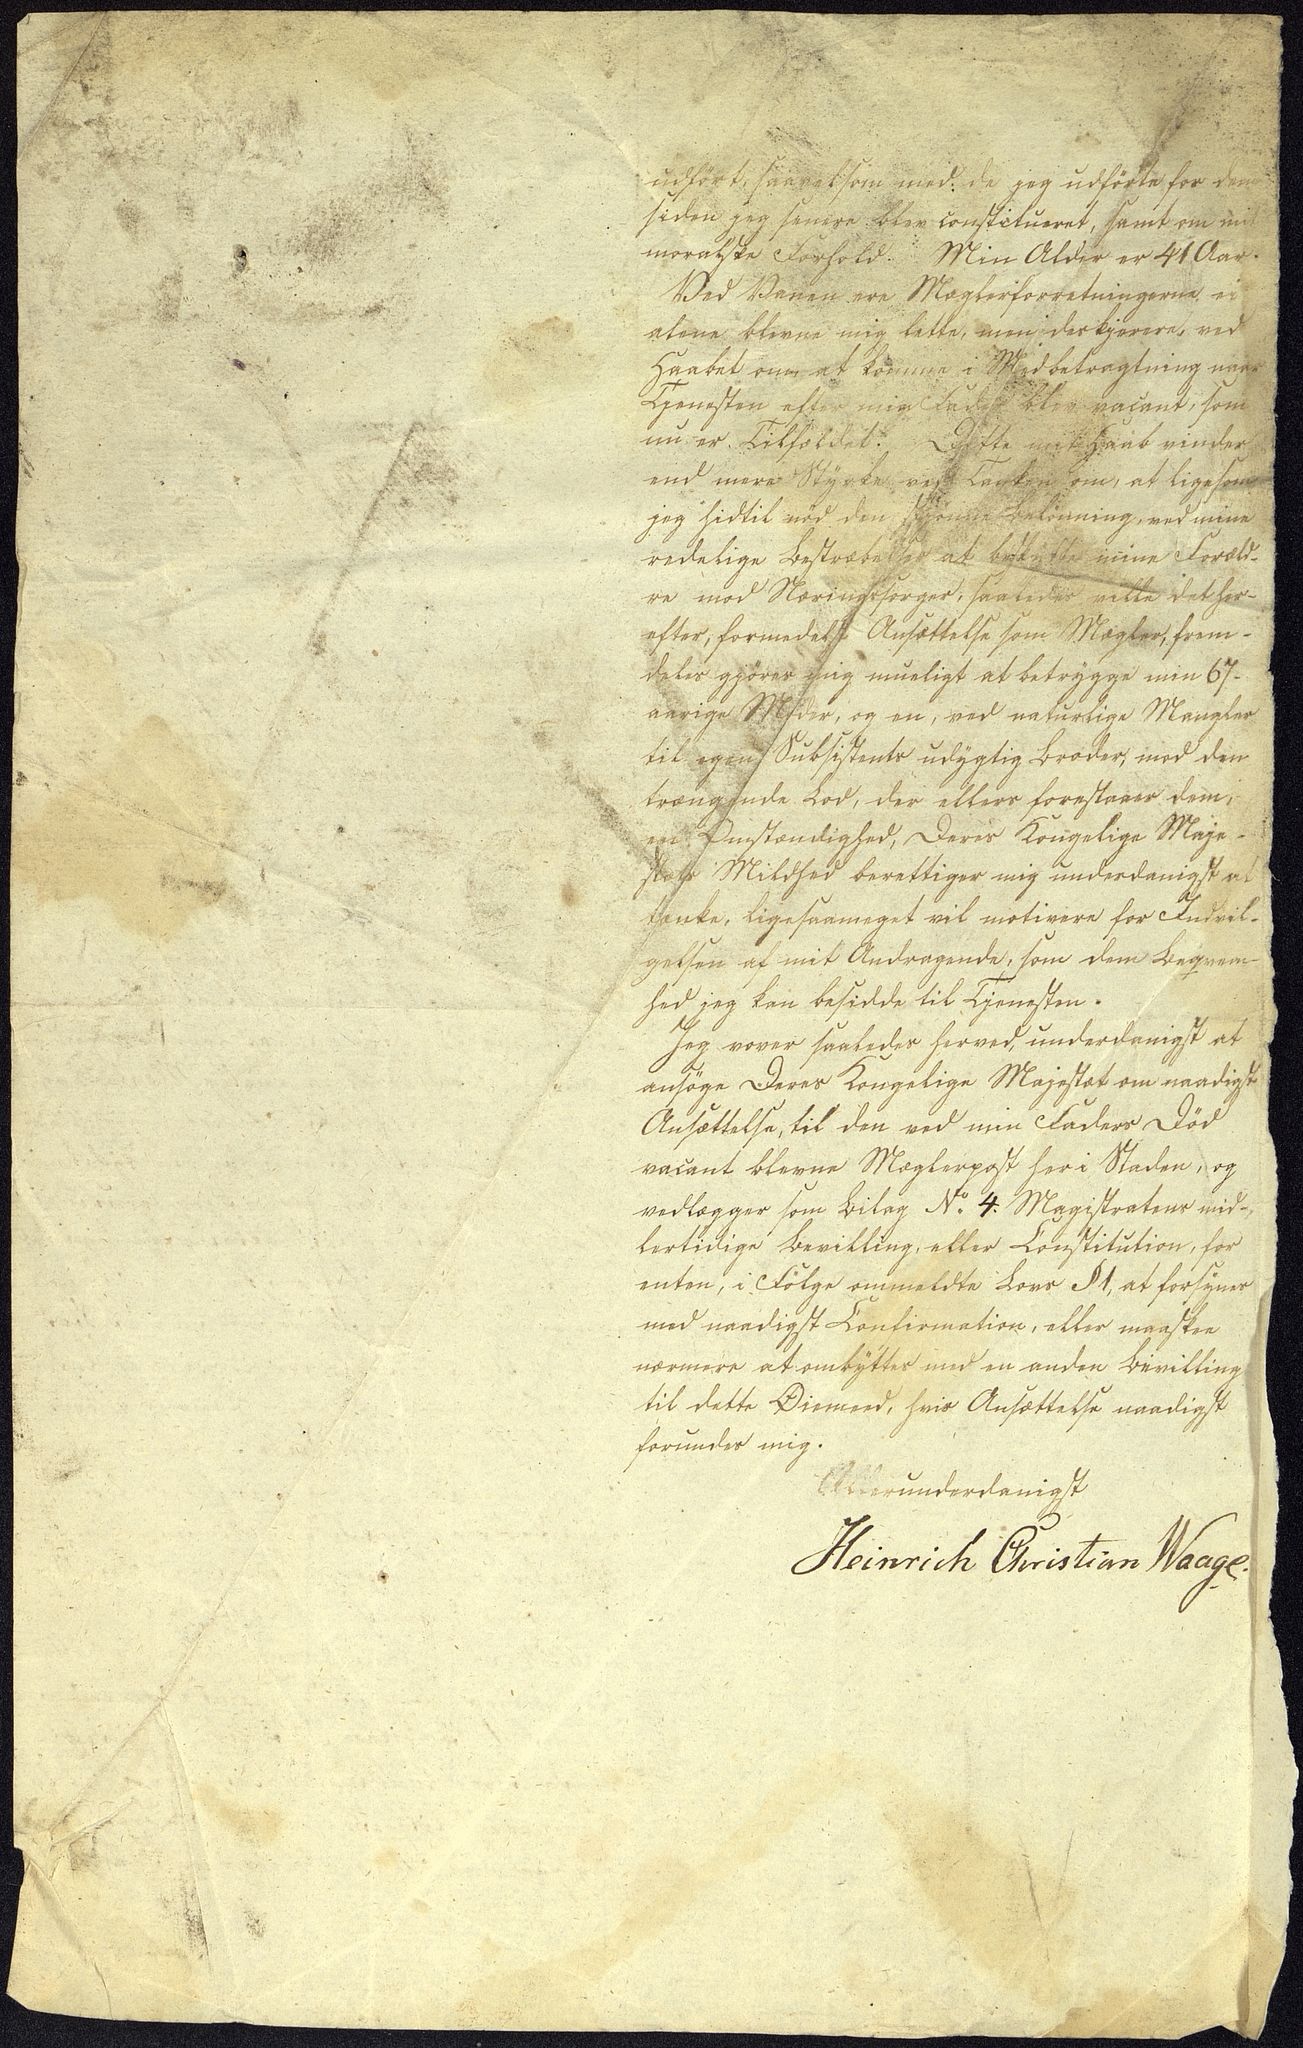 udført, saavelsom med de jeg udførte for dem
siden jeg senere blev constitueret, samt om mit
moralske Forhold. Min Alder er 41 Aar.
Ved Vanen ere Mæglerforretningerne ei
alene blevne mig lette, men des kjerere, ved
Haabet om at komme i Medbetragtning naar
Tjenesten efter min Fader blev vacant, som
nu er Tilfældet. Dette mit Haab vinder
end mere Styrke ved Tanken om, at ligesom
jeg hidtil nød den skjønne Belønning, ved mine
redelige Bestræbelser at beskytte mine Foræld-
re mod Næringssorger, saaledes ville det her-
efter, formedelst Ansættelse som Mægler, frem-
deles gjøres mig mueligt at betrygge min 67-
aarige Moder, og en, ved naturlige Mangler
til egen Subsistents udygtig Broder, mod den
trængende Lod, der ellers forestaaer dem,
en Omstændighed, Deres Kongelige Maje-
stæts Mildhed berettiger mig underdanigst at
tænke, ligesaameget vil motivere for Indvil-
gelsen af mit Andragende, som dem Beqvem-
hed jeg kan besidde til Tjenesten.
Jeg vover saaledes herved, underdanigst at
ansøge Deres Kongelige Majestæt om naadigst
Ansættelse, til den ved min Faders Død
vacant blevne Mæglerpost her i Staden, og
vedlægger som Bilag No. 4. Magistratens mid-
lertidige Bevilling, eller Constitution, for
enten, i Følge ommeldte Lovs §1, at forsynes
med naadigst Confirmation, eller maaskee
nærmere at ombyttes med en anden Bevilling
til dette Øiemeed, hvis Ansættelse naadigst
forundes mig.
Allerunderdanigst
Heinrich Christian Waage.